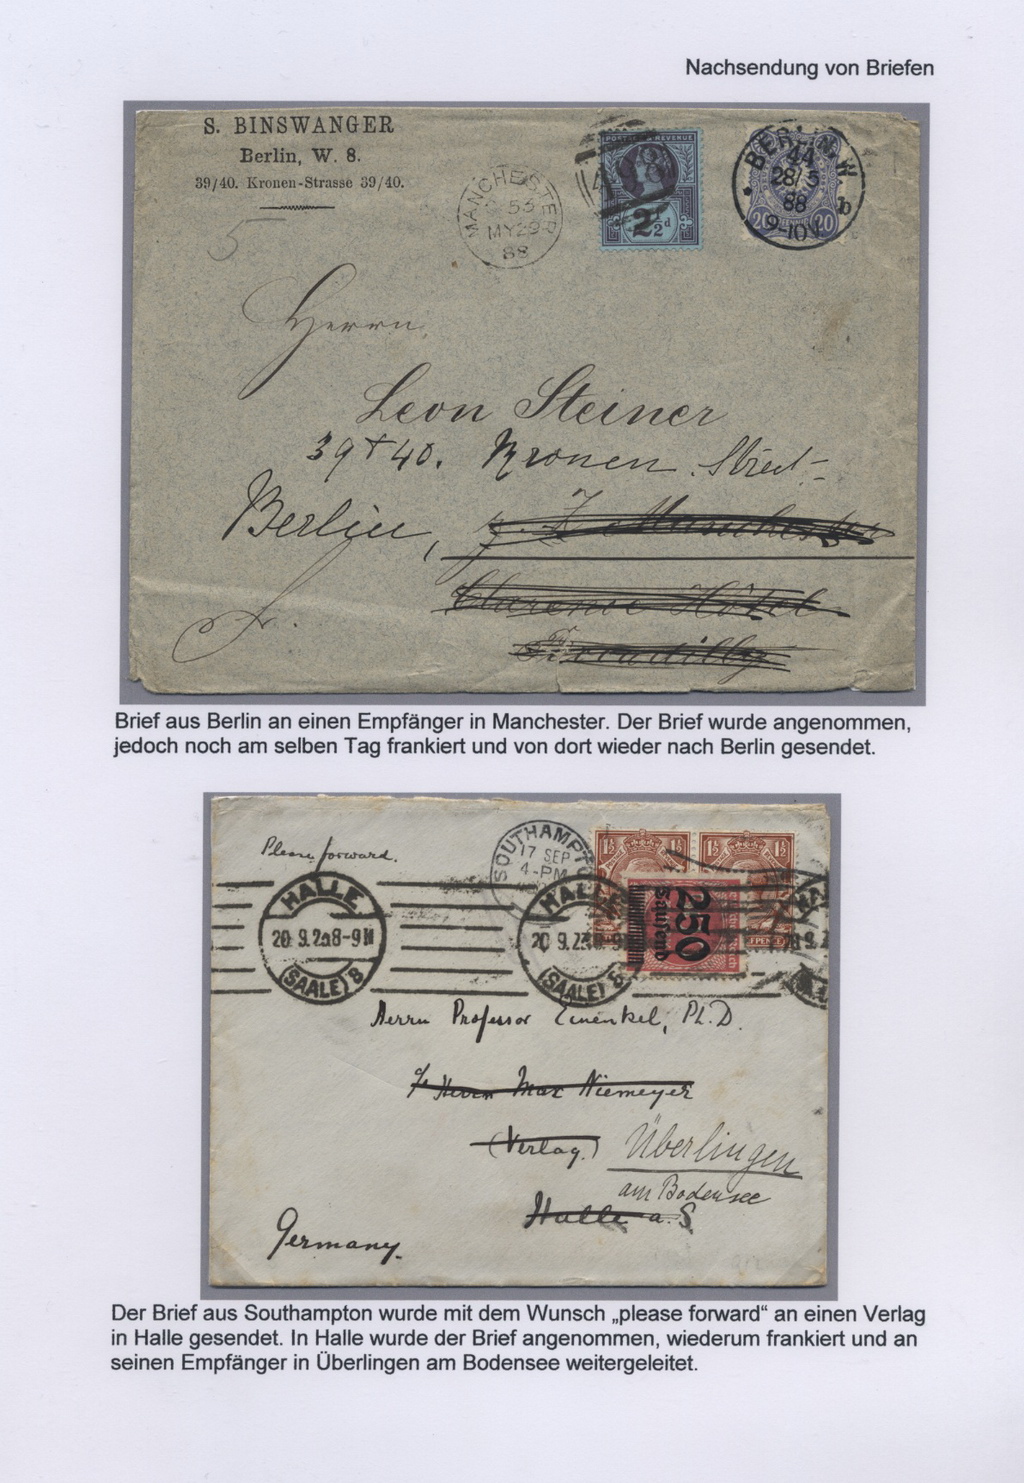 Nachsendung von Briefen
S. BINSWANGER
Berlin, W. 8.
39/40. Kronen-Strasse 39/40.
5
MANCHESTER
53
MY29
88
POSTAGE & REVENUE
2½d
BERLIN.W
44
28/5
88
9-10V
b
20 PFENNIG 20
Herrn
Leon Steiner
39+40. Kronen Street
Berlin, z. Z. Manchester
Clarence Hôtel
Piccadilly
Brief aus Berlin an einen Empfänger in Manchester. Der Brief wurde angenommen,
jedoch noch am selben Tag frankiert und von dort wieder nach Berlin gesendet.
Please forward.
SOUTHAMPTON
17 SEP
4-PM
1½ 1½
1½ 1½
250
Tausend
HALLE
20.9.23 8-9N
(SAALE) 8
HALLE
20.9.23 8-9
(SAALE) 8
Herrn Professor Einenkel, Ph.D.
c/o Herrn Max Niemeyer
(Verlag) Überlingen
am Bodensee
Halle a. S.
Germany.
Der Brief aus Southampton wurde mit dem Wunsch „please forward“ an einen Verlag
in Halle gesendet. In Halle wurde der Brief angenommen, wiederum frankiert und an
seinen Empfänger in Überlingen am Bodensee weitergeleitet.